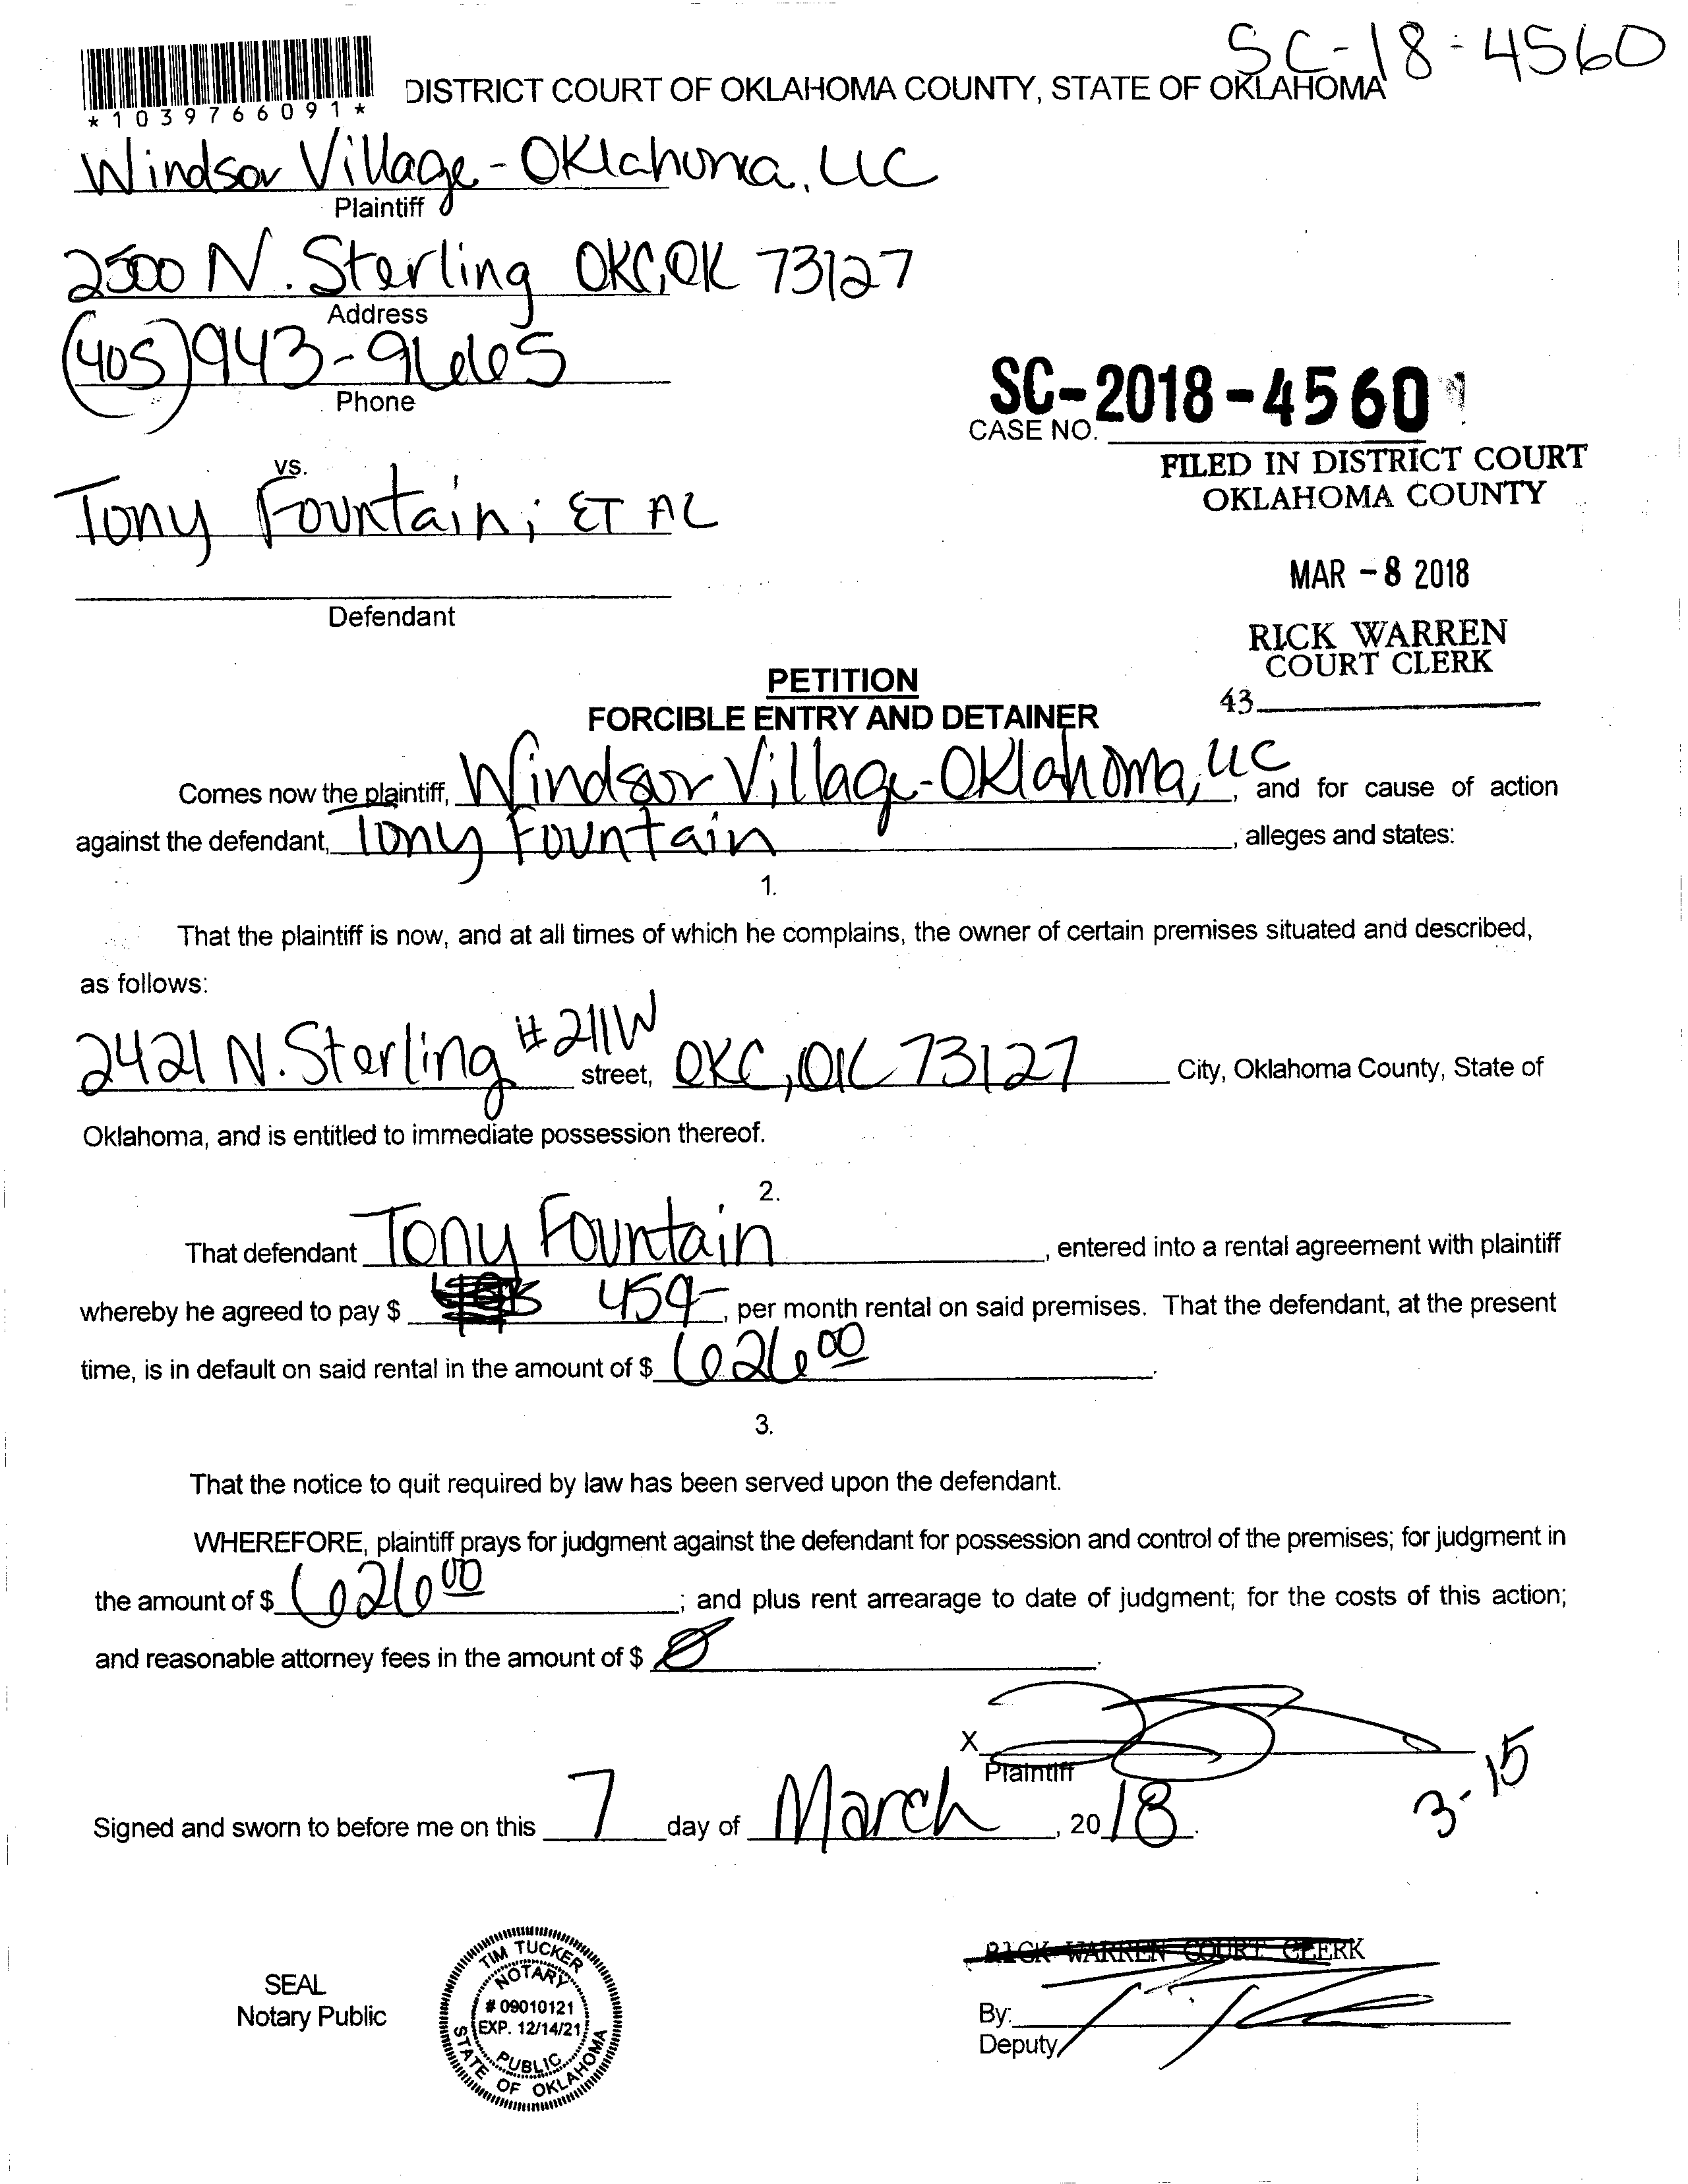 SC-18-4560
*1039766091*
DISTRICT COURT OF OKLAHOMA COUNTY, STATE OF OKLAHOMA
Windsor Village-Oklahoma, LLC
Plaintiff
2500 N. Sterling OKC, OK 73127
Address
(405) 943-9665
Phone
SC-2018-4560
CASE NO.
FILED IN DISTRICT COURT
OKLAHOMA COUNTY
vs.
Tony Fountain; ET AL
MAR -8 2018
Defendant
RICK WARREN
COURT CLERK
43
PETITION
FORCIBLE ENTRY AND DETAINER
Comes now the plaintiff, Windsor Village-Oklahoma, LLC, and for cause of action
against the defendant, Tony Fountain, alleges and states:
1.
That the plaintiff is now, and at all times of which he complains, the owner of certain premises situated and described,
as follows:
2421 N. Sterling #211W street, OKC, OK 73127 City, Oklahoma County, State of
Oklahoma, and is entitled to immediate possession thereof.
2.
That defendant Tony Fountain, entered into a rental agreement with plaintiff
whereby he agreed to pay $ 459-, per month rental on said premises. That the defendant, at the present
time, is in default on said rental in the amount of $ 626 00.
3.
That the notice to quit required by law has been served upon the defendant.
WHEREFORE, plaintiff prays for judgment against the defendant for possession and control of the premises; for judgment in
the amount of $ 626 00; and plus rent arrearage to date of judgment; for the costs of this action;
and reasonable attorney fees in the amount of $ 0.
X
Plaintiff
3-15
Signed and sworn to before me on this 7 day of March, 2018.
SEAL
Notary Public
TIM TUCKER
NOTARY
# 09010121
EXP. 12/14/21
PUBLIC
STATE OF OKLAHOMA
RICK WARREN COURT CLERK
By:
Deputy